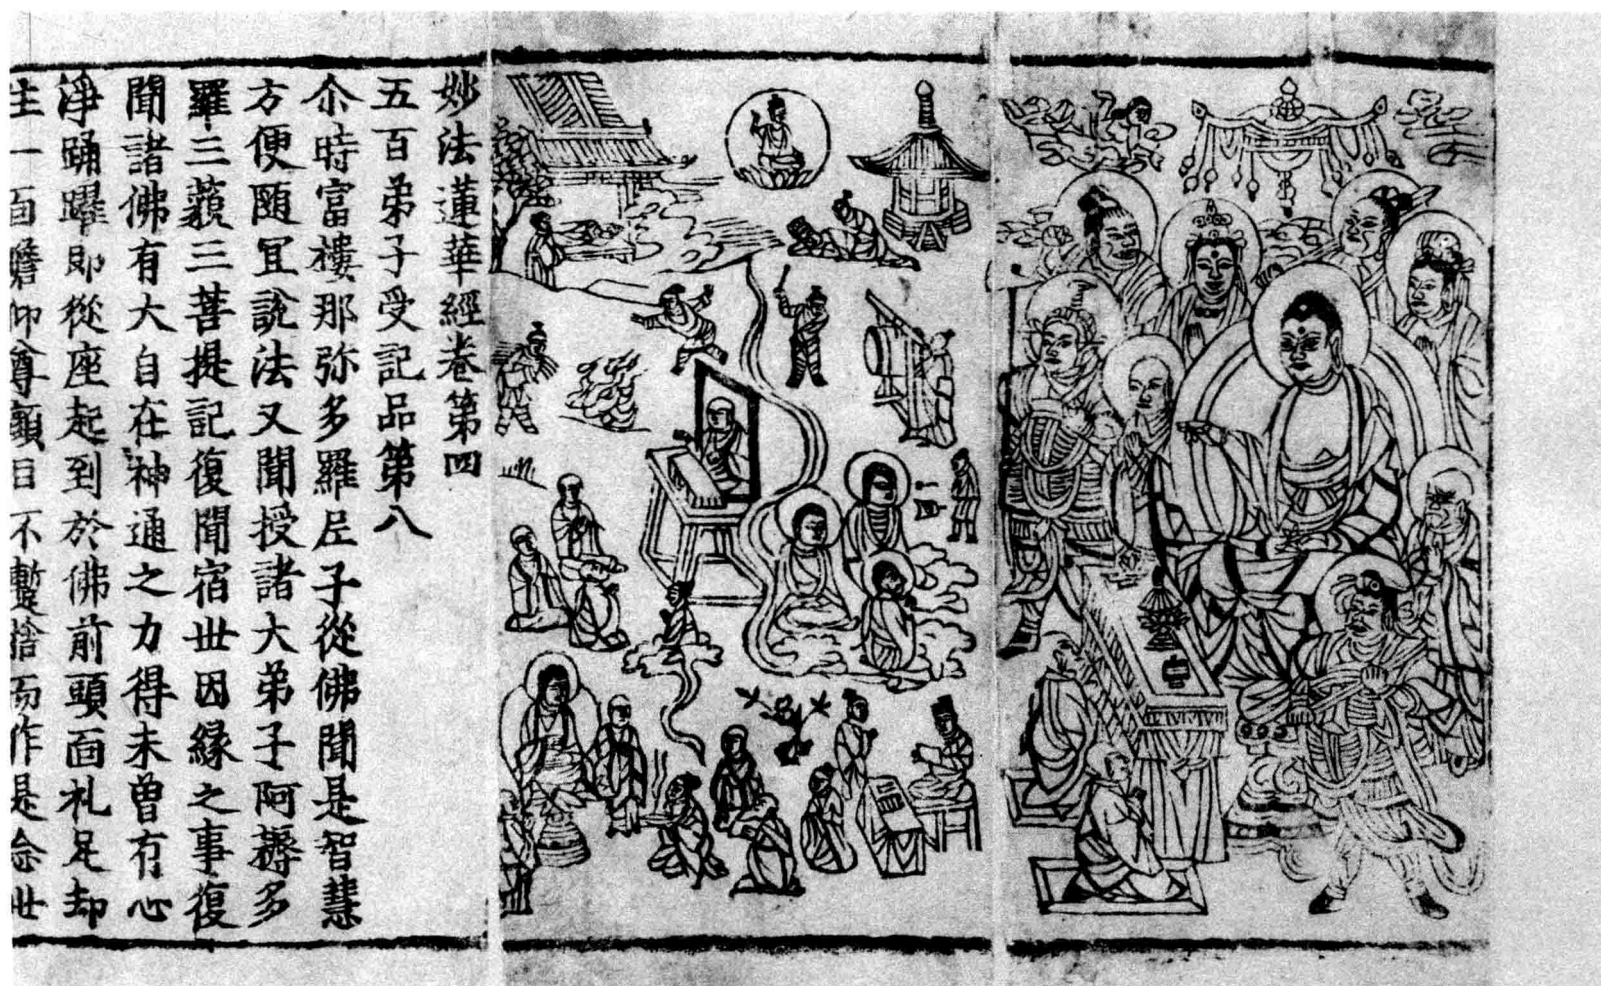 妙法蓮華經卷第四
五百弟子受記品第八
尒時富樓那弥多羅尼子從佛聞是智慧
方便隨冝說法又聞授諸大弟子阿耨多
羅三藐三菩提記復聞宿丗因緣之事復
聞諸佛有大自在神通之力得未曾有心
淨踊躍即從座起到於佛前頭面礼足却
住一面瞻仰尊顏目不蹔捨而作是念丗